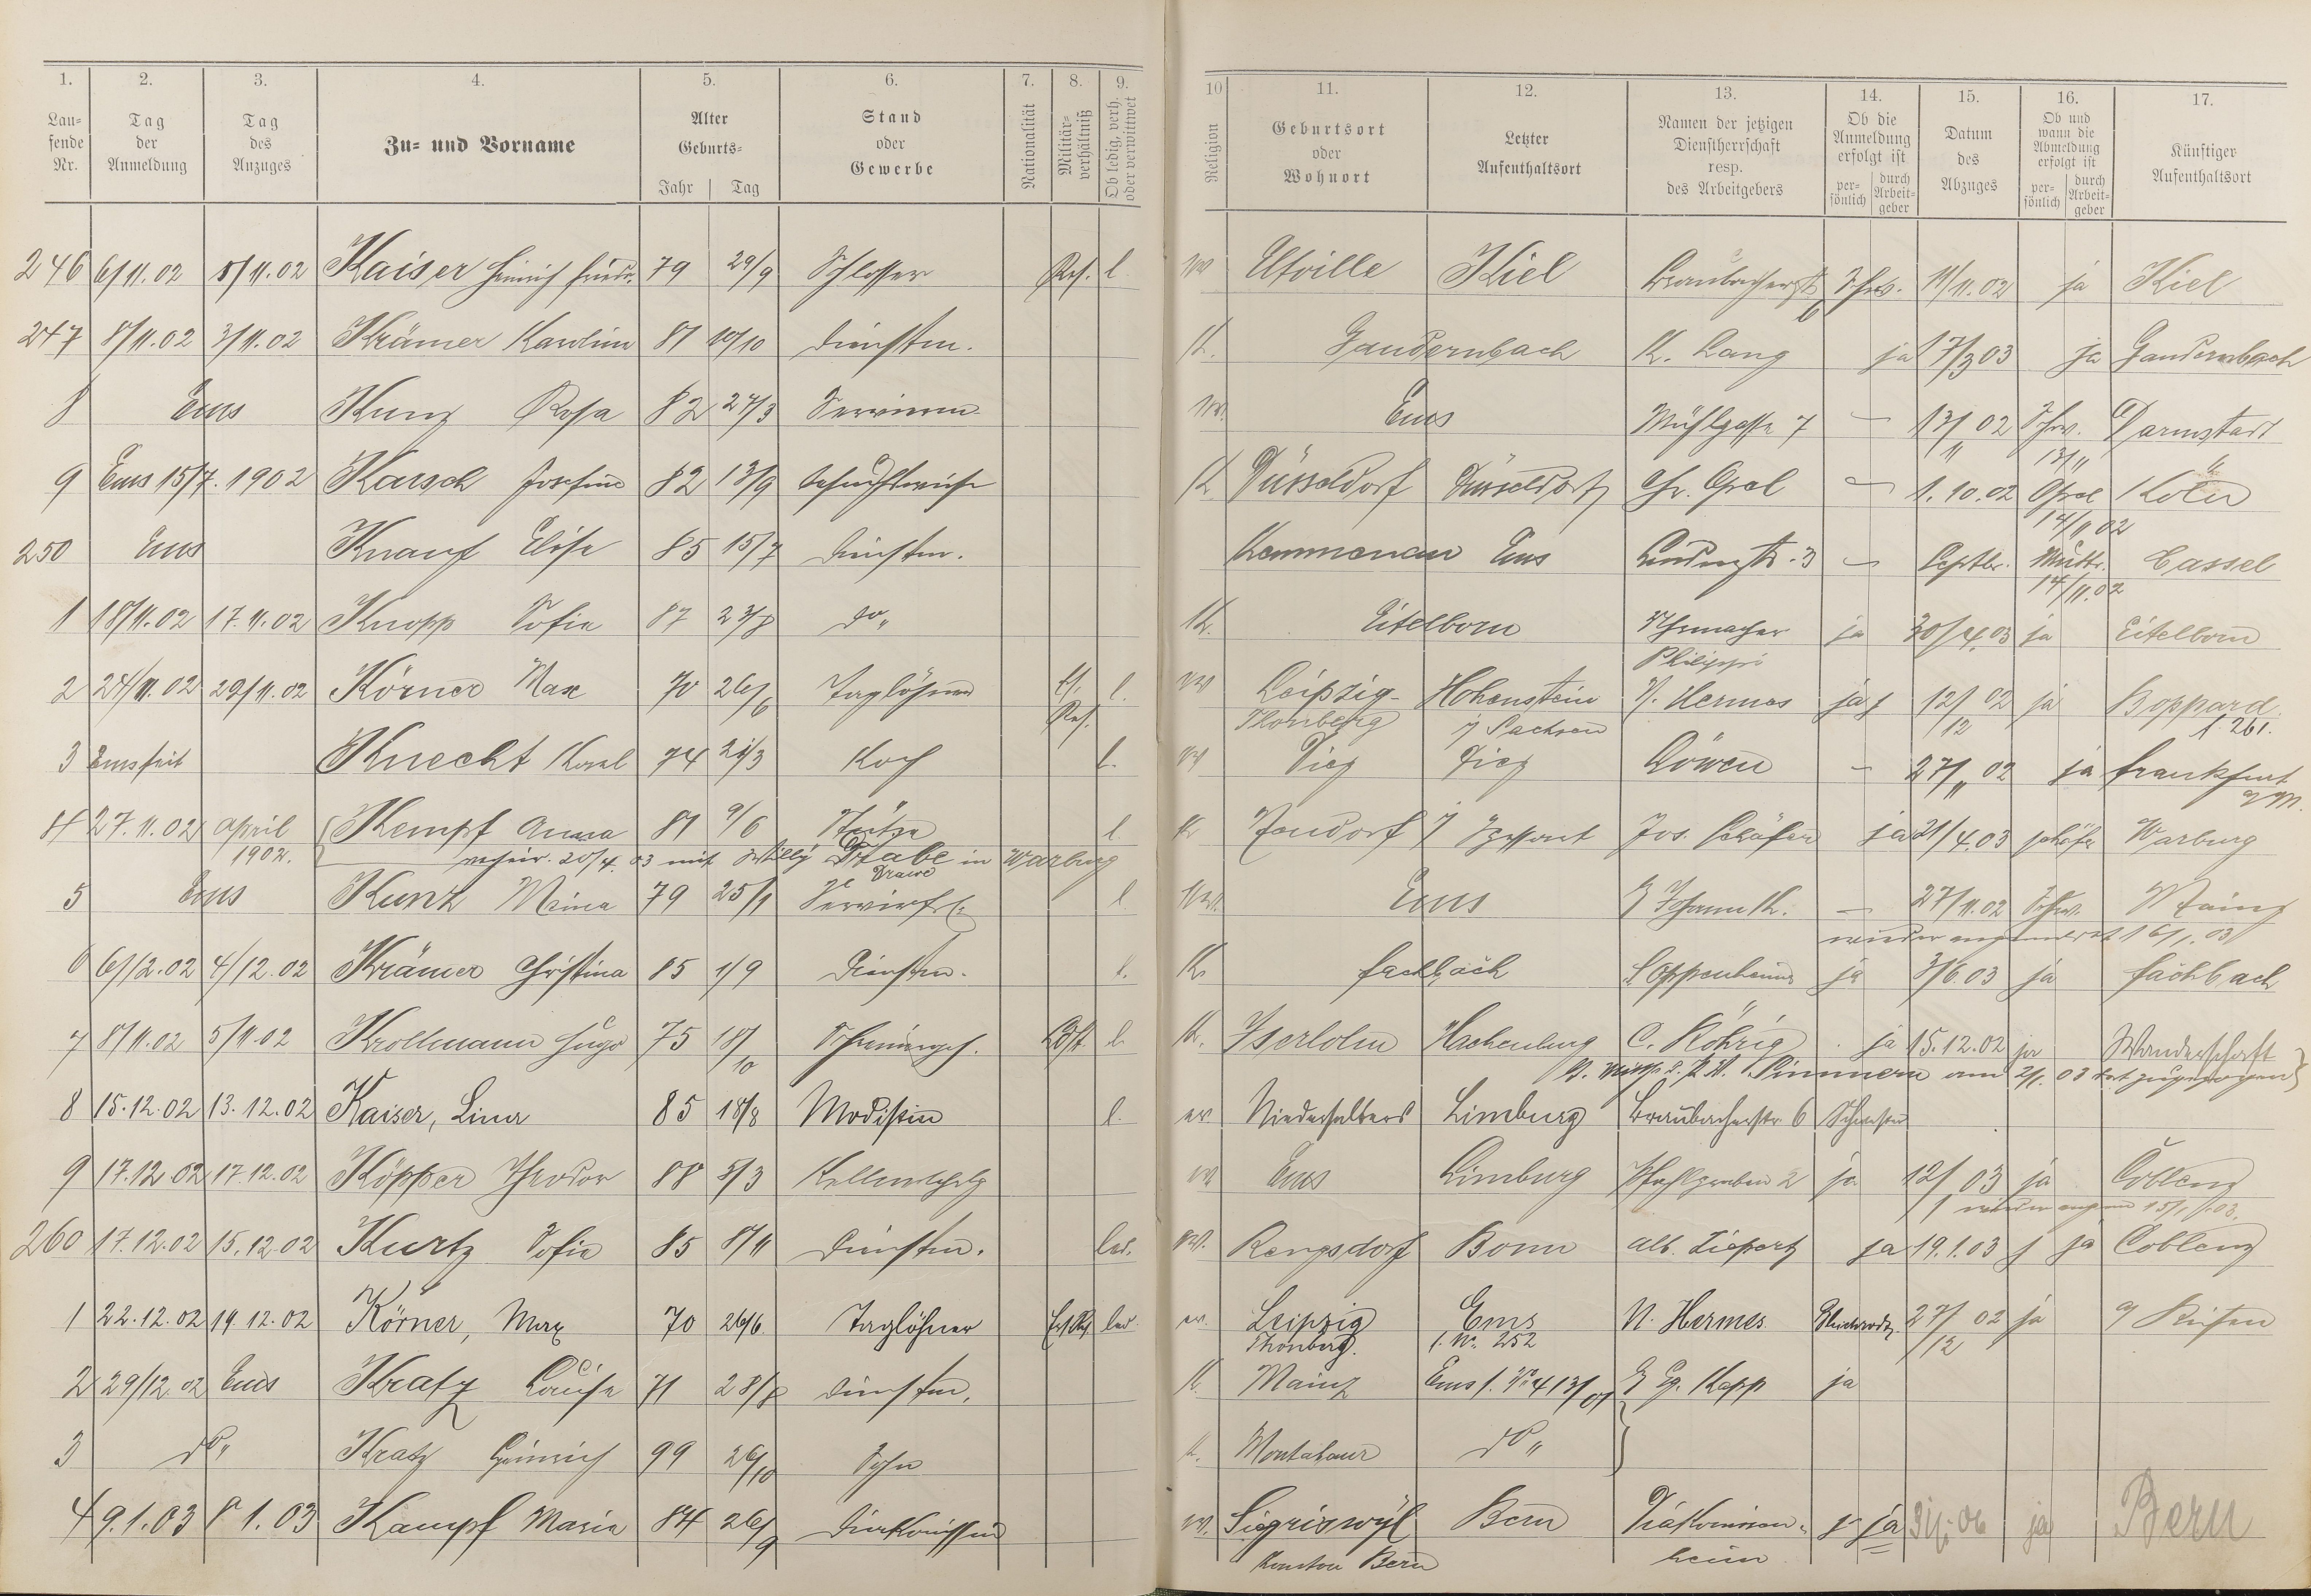 1. 2. 3. 4. 5. 6. 7. 8. 9. 10 11. 12. 13. 14. 15. 16. 17.
Lau-
fende
Nr.
Tag
der
Anmeldung
Tag
des
Anzuges
Zu- und Vorname
Alter
Geburts-
Jahr Tag
Stand
oder
Gewerbe
Nationalität
Militär-
verhältniß
Ob ledig, verh.
oder verwittwet
Religion
Geburtsort
oder
Wohnort
Letzter
Aufenthaltsort
Namen der jetzigen
Dienstherrschaft
resp.
des Arbeitgebers
Ob die
Anmeldung
erfolgt ist
per-
sönlich
durch
Arbeit-
geber
Datum
des
Abzuges
Ob und
wann die
Abmeldung
erfolgt ist
per-
sönlich
durch
Arbeit-
geber
Künftiger
Aufenthaltsort
246 6/11.02 5/11.02 Kaiser Heinrich Friedr. 79 29/9 Schlosser Res. l. ev Eltville Kiel Braubacherstr. 6 11/11.02 ja Kiel
247 8/11.02 3/11.02 Krämer Karolina 81 10/10 Dienstm. K. Gaudernbach K. Lang ja 17/3 03 ja Gaudernbach
8 Ems Kunz Rosa 82 27/3 ev. Ems Mühlgasse 7 — 13/11 02 Schw. 13/11 Darmstadt
9 Ems 15/7. 1902 Karsch Josefine 82 13/9 K Düsseldorf Düsseldorf Chr. Gral — 1.10.02 Gral 14/11 02 Köln
250 Ems Knauf Elise 85 15/7 Dienstm. Kemmenau Ems 3 — Septbr. Mutter 14/11.02 Cassel
1 18/11.02 17.11.02 Knopp Sofie 87 23/8 do. K. Eitelborn Uhrmacher ja 30/4.03 ja Eitelborn
Philippi
2 24/11.02 22/11.02 Körner Max 70 26/6 Taglöhner Res. l. ev Leipzig- Hohenstein N. Hermes ja 12/12 02 ja Boppard
Thonberg i/ Sachsen f. 261.
3 Ems seit Knecht Karl 74 21/3 Koch l. ev Diez Diez Löwen — 27/11 02 ja Frankfurt
a/M.
4 27.11.02 April Kempf Anna 81 9/6 Stütze l. K Jos. Schäfer ja 21/4.03 Schäfer Warburg
1902. verheir. 20/4. 03 mit Willy Drabe in Warburg
Drawe
5 Ems Kunz Mina 79 25/1 l. ev. Ems — 27/11.02 Schw. Mainz
wieder angemeldet 16/1.03
6 6/12.02 4/12.02 Krämer Christina 85 1/9 Dienstm. l. K. Fachbach S. Oppenheimer ja 3/6.03 ja Fachbach
7 8/11.02 5/11.02 Krollmann Hugo 75 18/10 Schreinerges. l. K. Iserlohn Hachenburg C. Röhrig ja 15.12.02 ja Wanderschaft
Simmern am 2/1.03 dort zugezogen
8 15.12.02 13.12.02 Kaiser, Lina 85 18/8 Modistin l. ev. Niederselters Limburg Braubacherstr. 6 Schwester
9 17.12.02 17.12.02 Köpper Theodor 88 5/3 Kellnerlehrlg ev Ems Limburg Pfahlgraben 2 ja 12/1 03 ja Coblenz
wieder angem 15/1.03.
260 17.12.02 15.12.02 Kurtz Sofie 85 8/11 Dienstm. led. ev. Rengsdorf Bonn Alb. Ziepertz ja 19.1.03 ja Coblenz
1 22.12.02 19.12.02 Körner, Max 70 26/6 Taglöhner led. ev. Leipzig Ems N. Hermes 27/12 02 ja a/ Reisen
Thonberg. f. No. 252
2 29/12.02 Ems Kratz Louise 71 28/8 Dienstm. K. Mainz Ems f. No 413/01 Gg. Kapp ja
3 do. Kratz Heinrich 99 26/10 Sohn K. Montabaur do.
4 9.1.03 8 1.03 Kampf Maria 84 26/9 Diakonissin ev. Sigriswyl Bern Diakonissen- ja 06 ja Bern
Kanton Bern heim